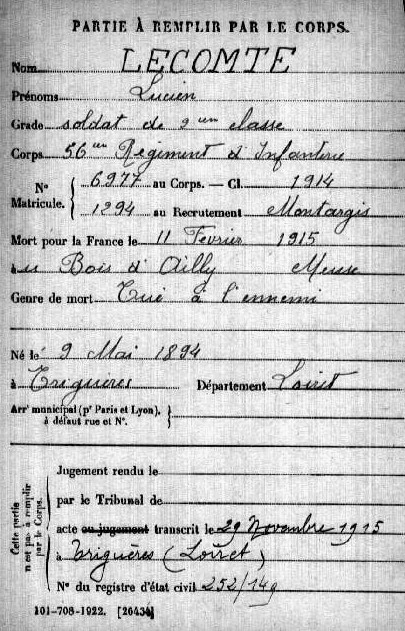 PARTIE À REMPLIR PAR LE CORPS.
Nom LECOMTE
Prénoms Lucien
Grade soldat de 2ème classe
Corps 56ème Régiment d'Infanterie
N° Matricule. { 6977 au Corps. — Cl. 1914
1294 au Recrutement Montargis
Mort pour la France le 11 Février 1915
à au Bois d'Ailly Meuse
Genre de mort Tué à l'ennemi
Né le 9 Mai 1894
à Triguères Département Loiret
Arr' municipal (p' Paris et Lyon), à défaut rue et N°.
Cette partie n'est pas à remplir par le Corps.
Jugement rendu le
par le Tribunal de
acte ou jugement transcrit le 29 Novembre 1915
à Triguères (Loiret)
N° du registre d'état civil 252/149
101-708-1922. [26434]